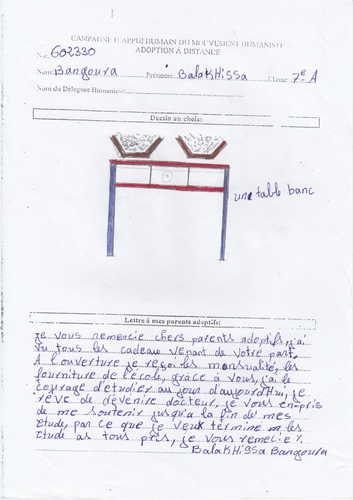 CAMPAGNE D'APPUI HUMAIN DU MOUVEMENT HUMANISTE
ADOPTION À DISTANCE
N°: 602330
Nom: Bangoura Prénom: BalaKHissa Classe: 7e A
Nom du Délégué Humaniste:
Dessin au choix:
une table banc
Lettre à mes parents adoptifs:
Je vous remercie chers parents adoptifs, j'ai
vu tous les cadeau venant de votre part.
A l'ouverture je reçoi les mensualité, les
fourniture de l'école, grâce à vous, j'ai le
courage d'étudier au jour d'aujourd'hui, je
rêve de devenire docteur, je vous en-pris
de me soutenir jusqu'a la fin de mes
Etude, par ce que je veux termine les
Etude as tous pris, je vous remecie
BalaKHissa Bangoura